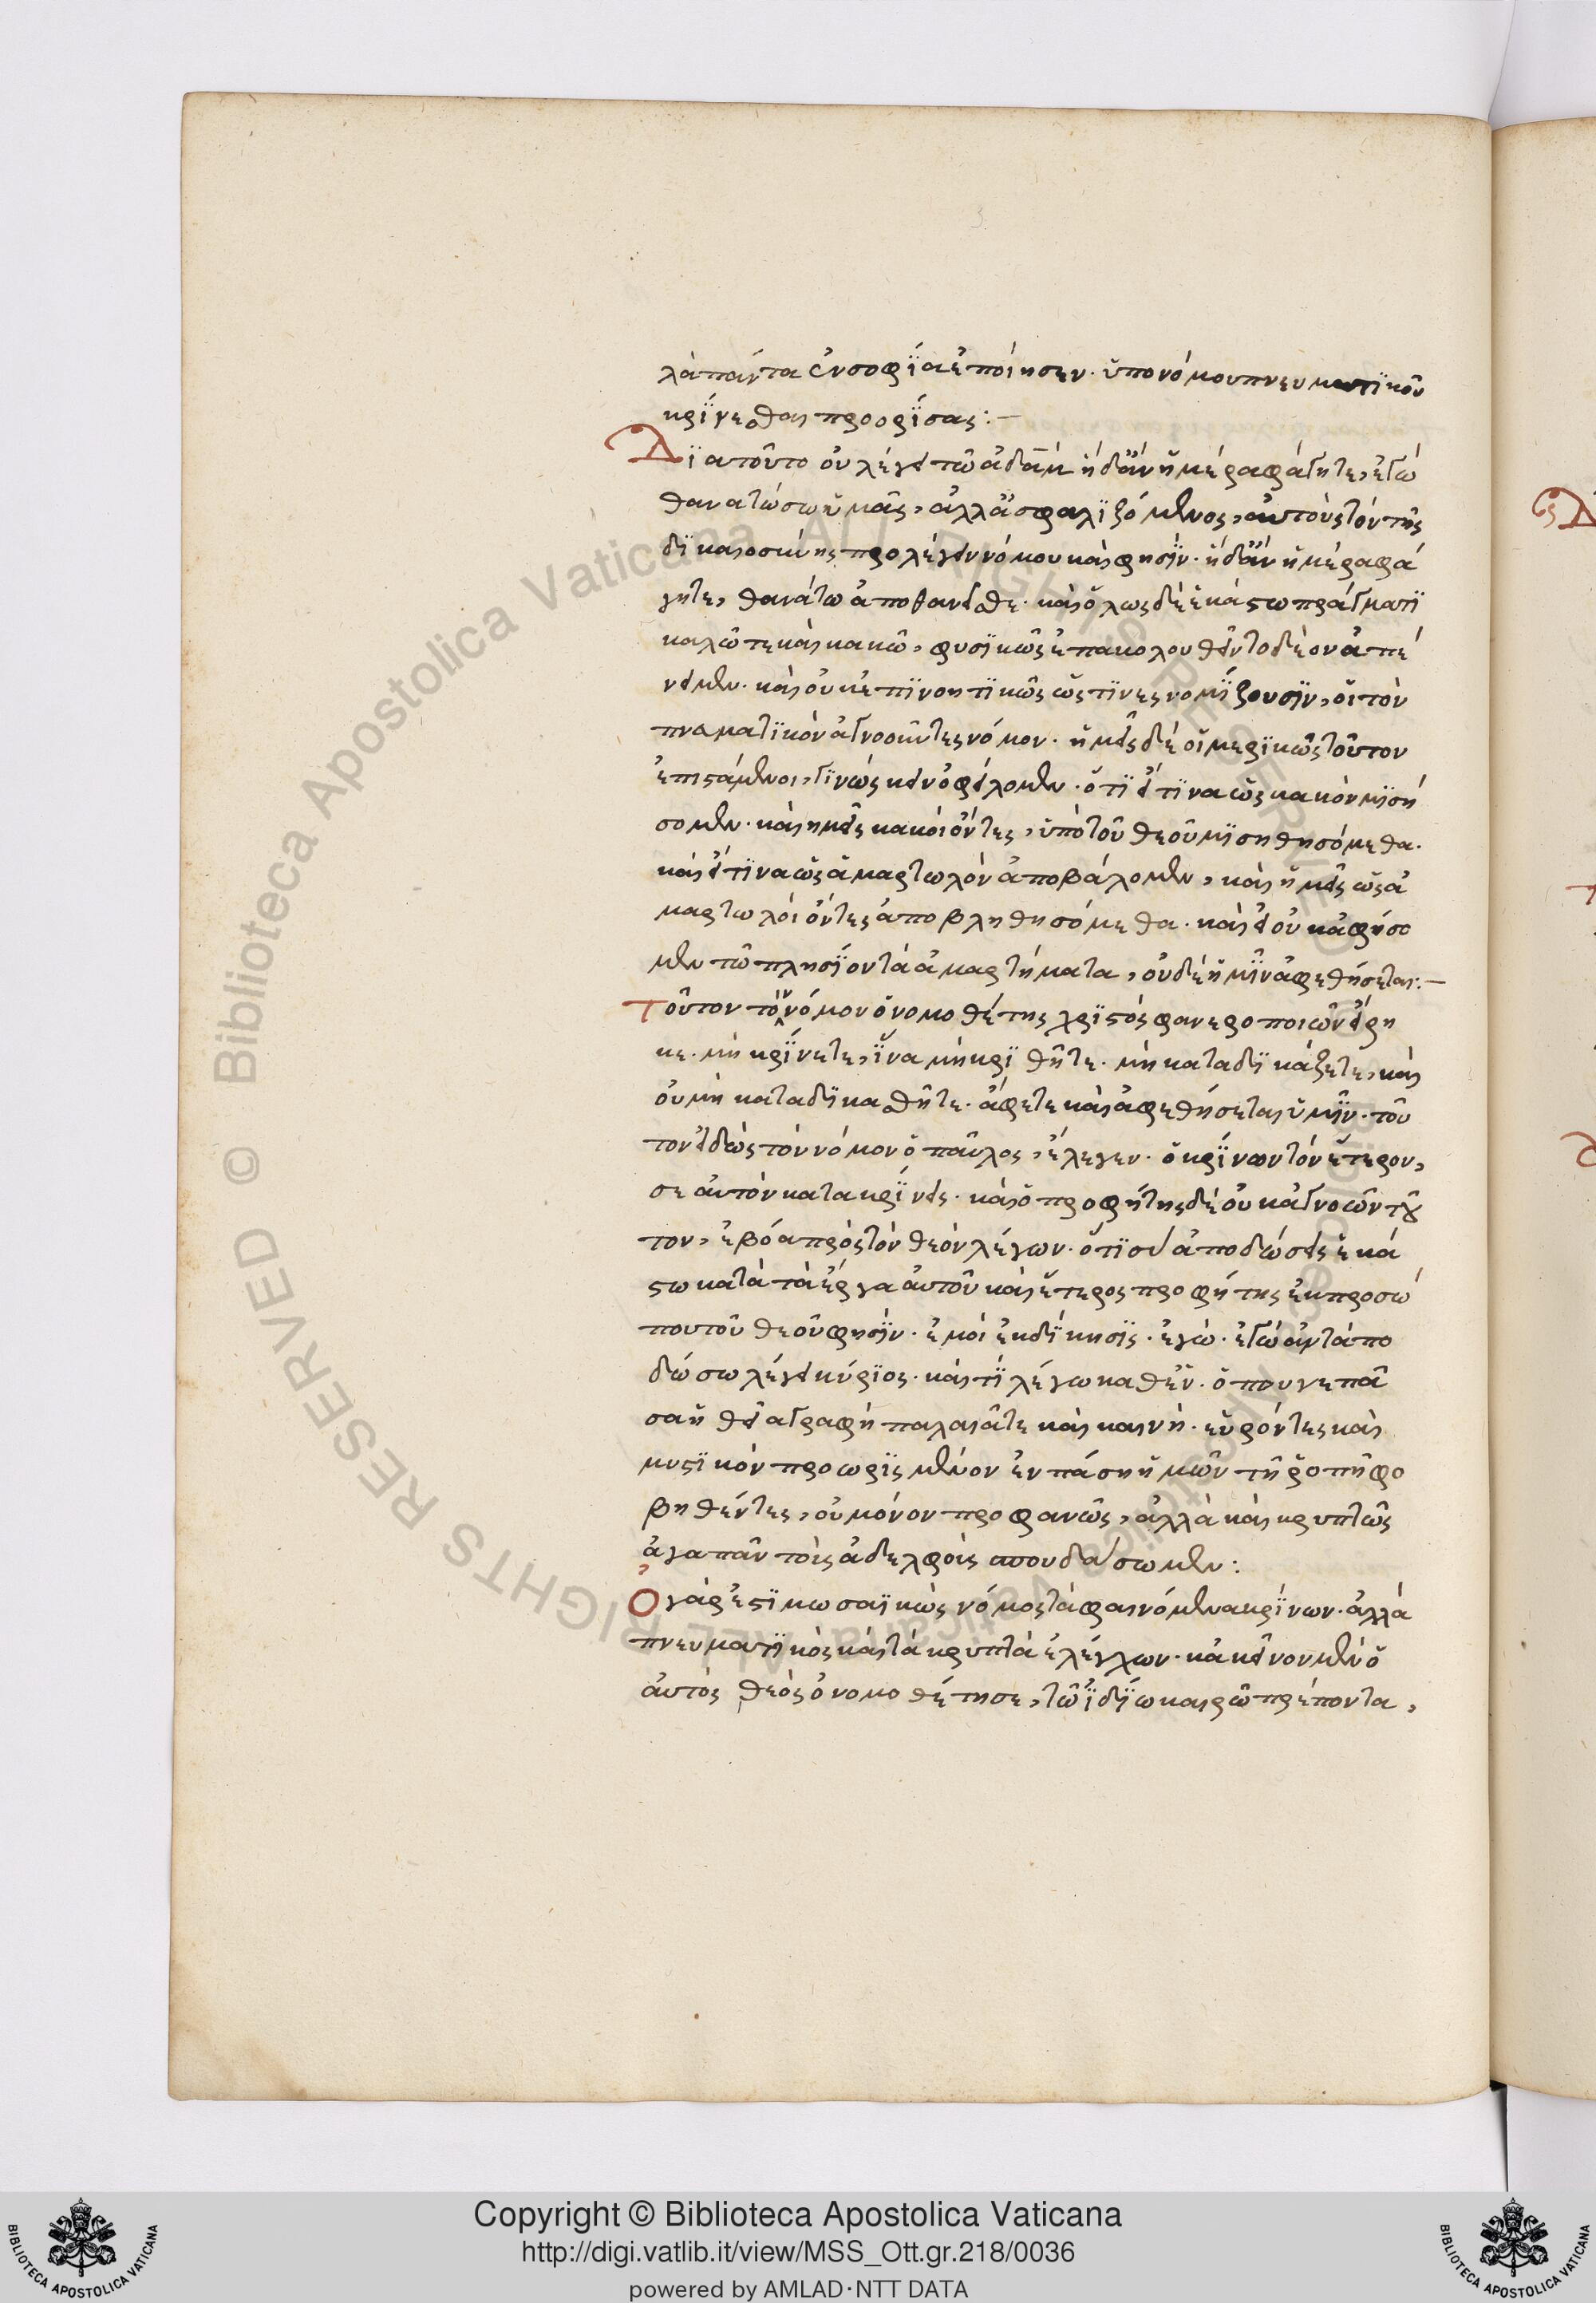 λὰ πάντα ἐν σοφΐα ἐποίησεν· ὑπο νόμου πνευματϊκοῦ
κρΐνεσθαι προορΐσας:—
Δϊατοῦτο οὐ λέγει τῶ ἀδὰμ ἡ δἂν ἡμέρα φάγητε, ἐγὼ
θανατώσω ὑμᾶς, ἀλλ' ἀσφαλϊζόμενος, αὐτοὺς τὸν τῆς
δϊκαιοσύνης προλέγειν νόμου καὶ φησΐν· ᾗ δἂν ἡμέρα φά
γητε, θανάτω ἀποθανεῖσθε· καὶ ὅλως δὲ ἑκάστω πράγματϊ
καλῶ τε καὶ κακῶ, φυσϊκῶς ἐπακολουθεῖν τὸ δέον ἀπέ
νειμεν· καὶ οὐκ ἐπϊνοητϊκῶς ὥς τϊνες νομΐζουσϊν, οἱ τὸν
πναματϊκὸν ἀγνοοῦντες νόμον· ἡμεῖς δὲ οἱ μερϊκῶς τοῦτον
ἐπιστάμενοι, γϊνώσκειν ὀφείλομεν· ὅτϊ εἴ τϊνα ὡς κακὸν μϊσή
σομεν· καὶ ημεῖς κακοὶ ὄντες, ὑπὸ τοῦ θεοῦ μϊσηθησόμεθα·
καὶ εἴ τϊνα ὡς ἁμαρτωλὸν ἀποβάλομεν, καὶ ἡμεῖς ὡς ἁ
μαρτωλοὶ ὄντες ἀποβληθησόμεθα· καὶ εἰ οὐκ ἀφήσο
μεν τῶ πλησΐον τὰ ἁμαρτήματα, οὐδὲ ἡμῖν ἀφεθήσεται:—
Τοῦτον τὸν νόμον ὁ νομοθέτης χρϊστὸς φανεροποιῶν εἴρη
κε· μὴ κρΐνετε, ἵνα μὴ κρϊθῆτε· μὴ καταδϊκάζετε, καὶ
οὐ μὴ καταδϊκασθῆτε· ἄφετε καὶ ἀφεθήσεται ὑμῖν· τοῦ
τον εἰδὼς τὸν νόμον ὁ παῦλος, ἔλεγεν· ὁ κρΐνων τὸν ἕτερον,
σεαυτὸν κατακρΐνεις· καὶ ὁ προφήτης δὲ οὐκ ἀγνοῶν τοῦ
τον, ἐβόα πρὸς τὸν θεὸν λέγων· ὅτϊ σὺ ἀποδώσεις ἑκά
στω κατὰ τὰ ἔργα αὐτοῦ καὶ ἕτερος προφήτης ἐκ προσώ
που τοῦ θεοῦ φησϊν· ἐμοὶ ἐκδΐκησϊς· ἐγὼ· ἐγὼ ἀνταπο
δώσω λέγει κύρϊος· καὶ τΐ λέγω καθ' ἓν· ὅπου γε πᾶ
σα ἡ θεία γραφὴ παλαιᾶτε καὶ καινὴ· εὑρόντες καὶ
μυστϊκὸν προωρϊσμένον ἐν πάση ἡμῶν τῆ ῥοπῆ φο
βηθέντες, οὐ μόνον προφανῶς, ἀλλὰ καὶ κρυπτῶς
ἀγαπᾶν τοῖς ἀδελφοῖς σπουδάσωμεν:
Ὁ γάρ ἐστϊ μωσαϊκὼς νόμος τὰ φαινόμενα κρΐνων· ἀλλὰ
πνευματϊκὸς καὶ τὰ κρυπτὰ ἐλέγχων· κἀκεῖνον μὲν ὁ
αὐτὸς θεὸς ἐνομοθέτησε, τῶ ἰδΐω καιρῶ πρέποντα,
Copyright © Biblioteca Apostolica Vaticana
http://digi.vatlib.it/view/MSS_Ott.gr.218/0036
powered by AMLAD·NTT DATA